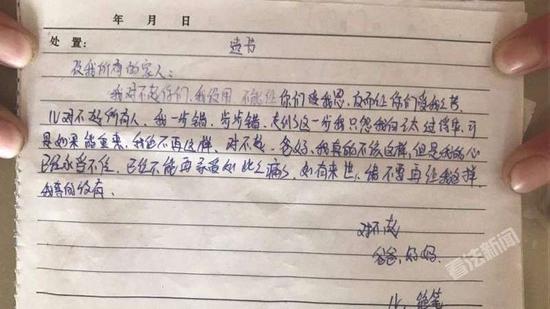 年 月 日
处 置:
遗书
致我所有的家人:
我对不起你们,我没用 不能让你们 我 ,反而让你们受我之苦。
儿对不起所有人、我一步错,步步错,走到这一步我只 我自己太过 ,可
是如果能重来,我也不再这样。对不起,爸妈,我真的不该这样,但是我的心
已经承受不住,已经不能再承受如此之痛,如有来世,绝不要再让我这样,
我真的没有。
对不起
爸爸、妈妈
儿、绝笔
看法新闻